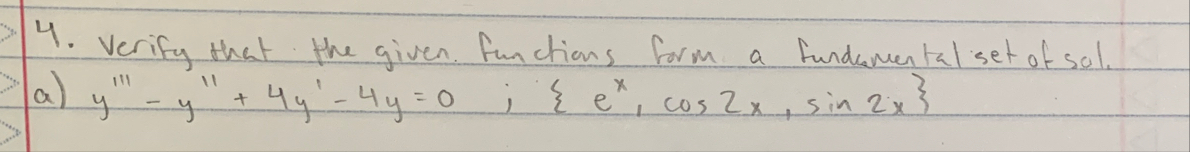 4. Verify that the given functions form a fundamental set of sol.
a) y''' - y'' + 4y' - 4y = 0 ; { eˣ, cos 2x, sin 2x }